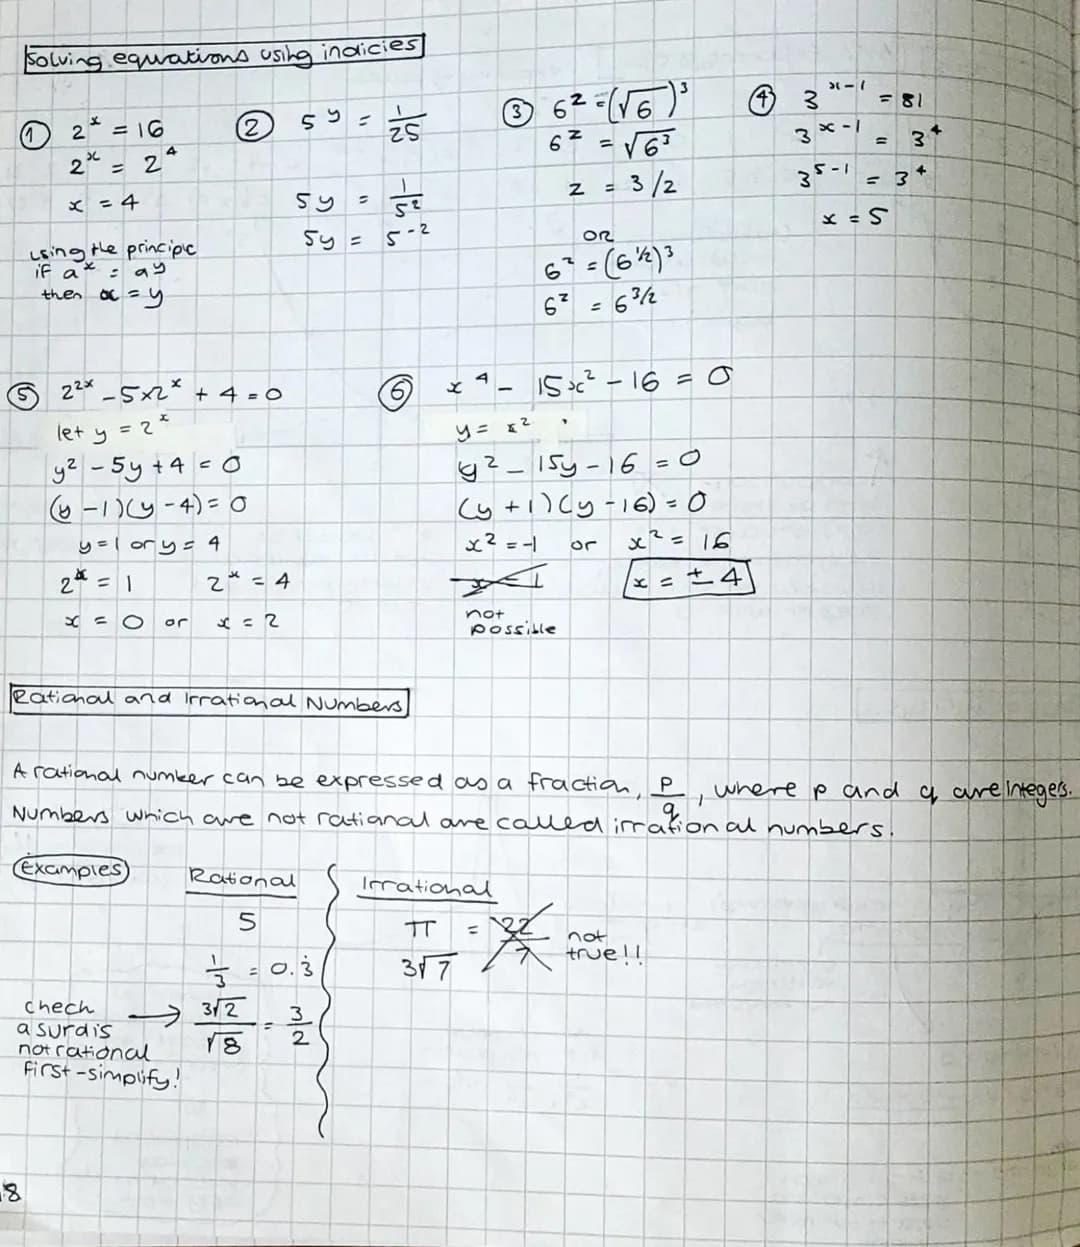 Solving equations using indicies
① 2ˣ = 16
2ˣ = 2⁴
x = 4
using the principle
if aˣ = aʸ
then x = y
② 5ʸ = 1/25
5y = 1/5²
5y = 5⁻²
③ 6ᶻ = (√6)³
6ᶻ = √6³
z = 3/2
OR
6ᶻ = (6^½)³
6ᶻ = 6^3/2
④ 3ˣ⁻¹ = 81
3ˣ⁻¹ = 3⁴
3⁵⁻¹ = 3⁴
x = 5
⑤ 2²ˣ - 5×2ˣ + 4 = 0
let y = 2ˣ
y² - 5y + 4 = 0
(y - 1)(y - 4) = 0
y = 1 or y = 4
2ˣ = 1 2ˣ = 4
x = 0 or x = 2
⑥ x⁴ - 15x² - 16 = 0
y = x²
y² - 15y - 16 = 0
(y + 1)(y - 16) = 0
x² = -1 or x² = 16
x = 1 x = ± 4
not
possible
Rational and Irrational Numbers
A rational number can be expressed as a fraction, p/q, where p and q are integers.
Numbers which are not rational are called irrational numbers.
Examples
Rational
5
1/3 = 0.3̇
3√2/√8 = 3/2
check →
a surd is
not rational
first - simplify!
Irrational
π = 22/7 not
true!!
3√7
18